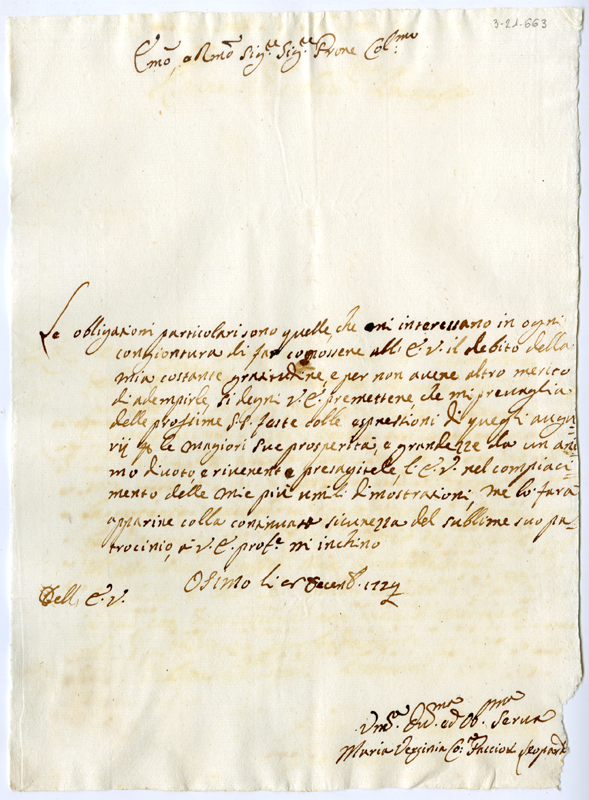 3-21-663
Emõ, e Rmõ Sig.re Sig.re Prone Col.mo
Le obligazioni particolari sono quelle, che mi interessano in ogni
congiontura di far conossere all' E. V. il debito della
mia costante gratitudine, e per non avere altro merito
di adempirle, si degni V. E. premettere che mi prevaglia
delle prossime S.te feste colle espressioni di quegli augu=
rij per le magiori sue prosperità, e grandezze da un ani=
mo divoto, e riverente presagitele, l' E. V. nel compiaci=
mento delle mie più umili dimostrazioni, me lo farà
apparire colla continuata sicurezza del sublime suo pa=
trocinio, e a V. E. prof.te mi inchino
Osimo li Decemb. 1729
Dell' E. V.
Um.a Dev.ma ed Ob.ma Serva
Maria Verginia Leopardi